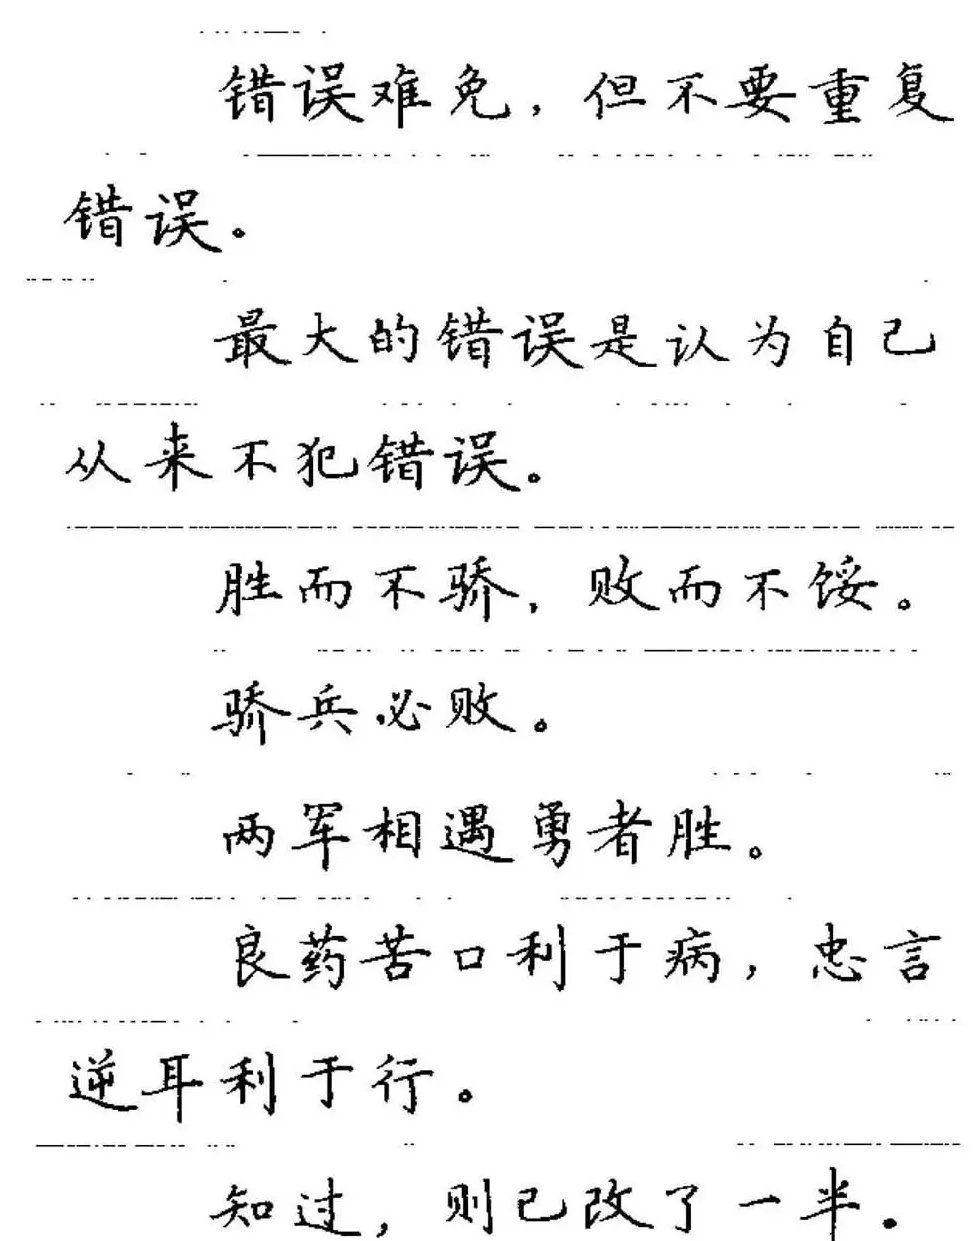 错误难免，但不要重复
错误。
最大的错误是认为自己
从来不犯错误。
胜而不骄，败而不馁。
骄兵必败。
两军相遇勇者胜。
良药苦口利于病，忠言
逆耳利于行。
知过，则已改了一半。